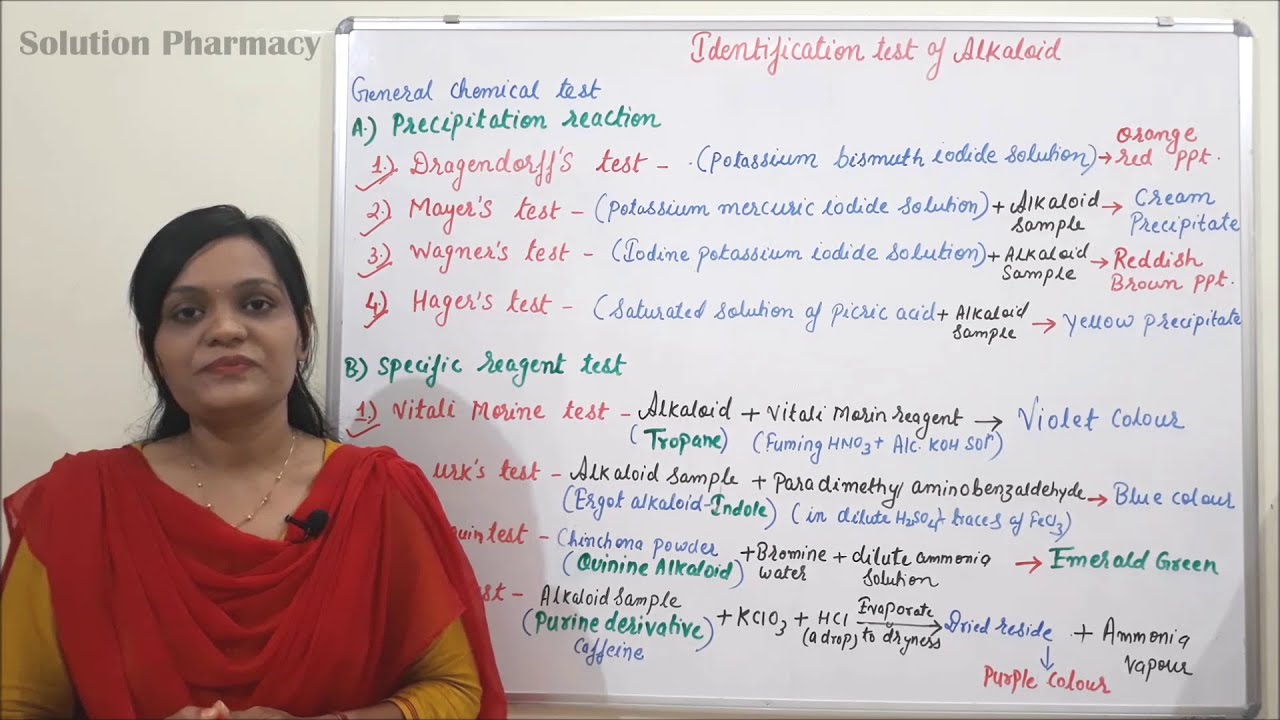 Solution Pharmacy
Identification test of Alkaloid
General chemical test
A.) Precipitation reaction
1.) Dragendorff's test - (Potassium bismuth iodide solution) → orange red ppt.
2.) Mayer's test - (Potassium mercuric iodide solution) + Alkaloid Sample → Cream Precipitate
3.) Wagner's test - (Iodine potassium iodide solution) + Alkaloid Sample → Reddish Brown ppt.
4.) Hager's test - (Saturated solution of picric acid + Alkaloid Sample → Yellow precipitate
B) Specific reagent test
1.) Vitali Morine test - Alkaloid + Vitali Morin reagent → Violet colour
(Tropane) (Fuming HNO3 + Alc. KOH Solⁿ)
urk's test - Alkaloid Sample + Paradimethyl aminobenzaldehyde → Blue colour
(Ergot alkaloid - Indole) (in dilute H2SO4 + traces of FeCl3)
quin test - Chinchona powder + Bromine water + dilute ammonia solution → Emerald Green
(Quinine Alkaloid)
est - Alkaloid Sample + KClO3 + HCl (a drop) Evaporate to dryness → Dried reside + Ammonia vapour
(Purine derivative)
Caffeine
↓
Purple colour